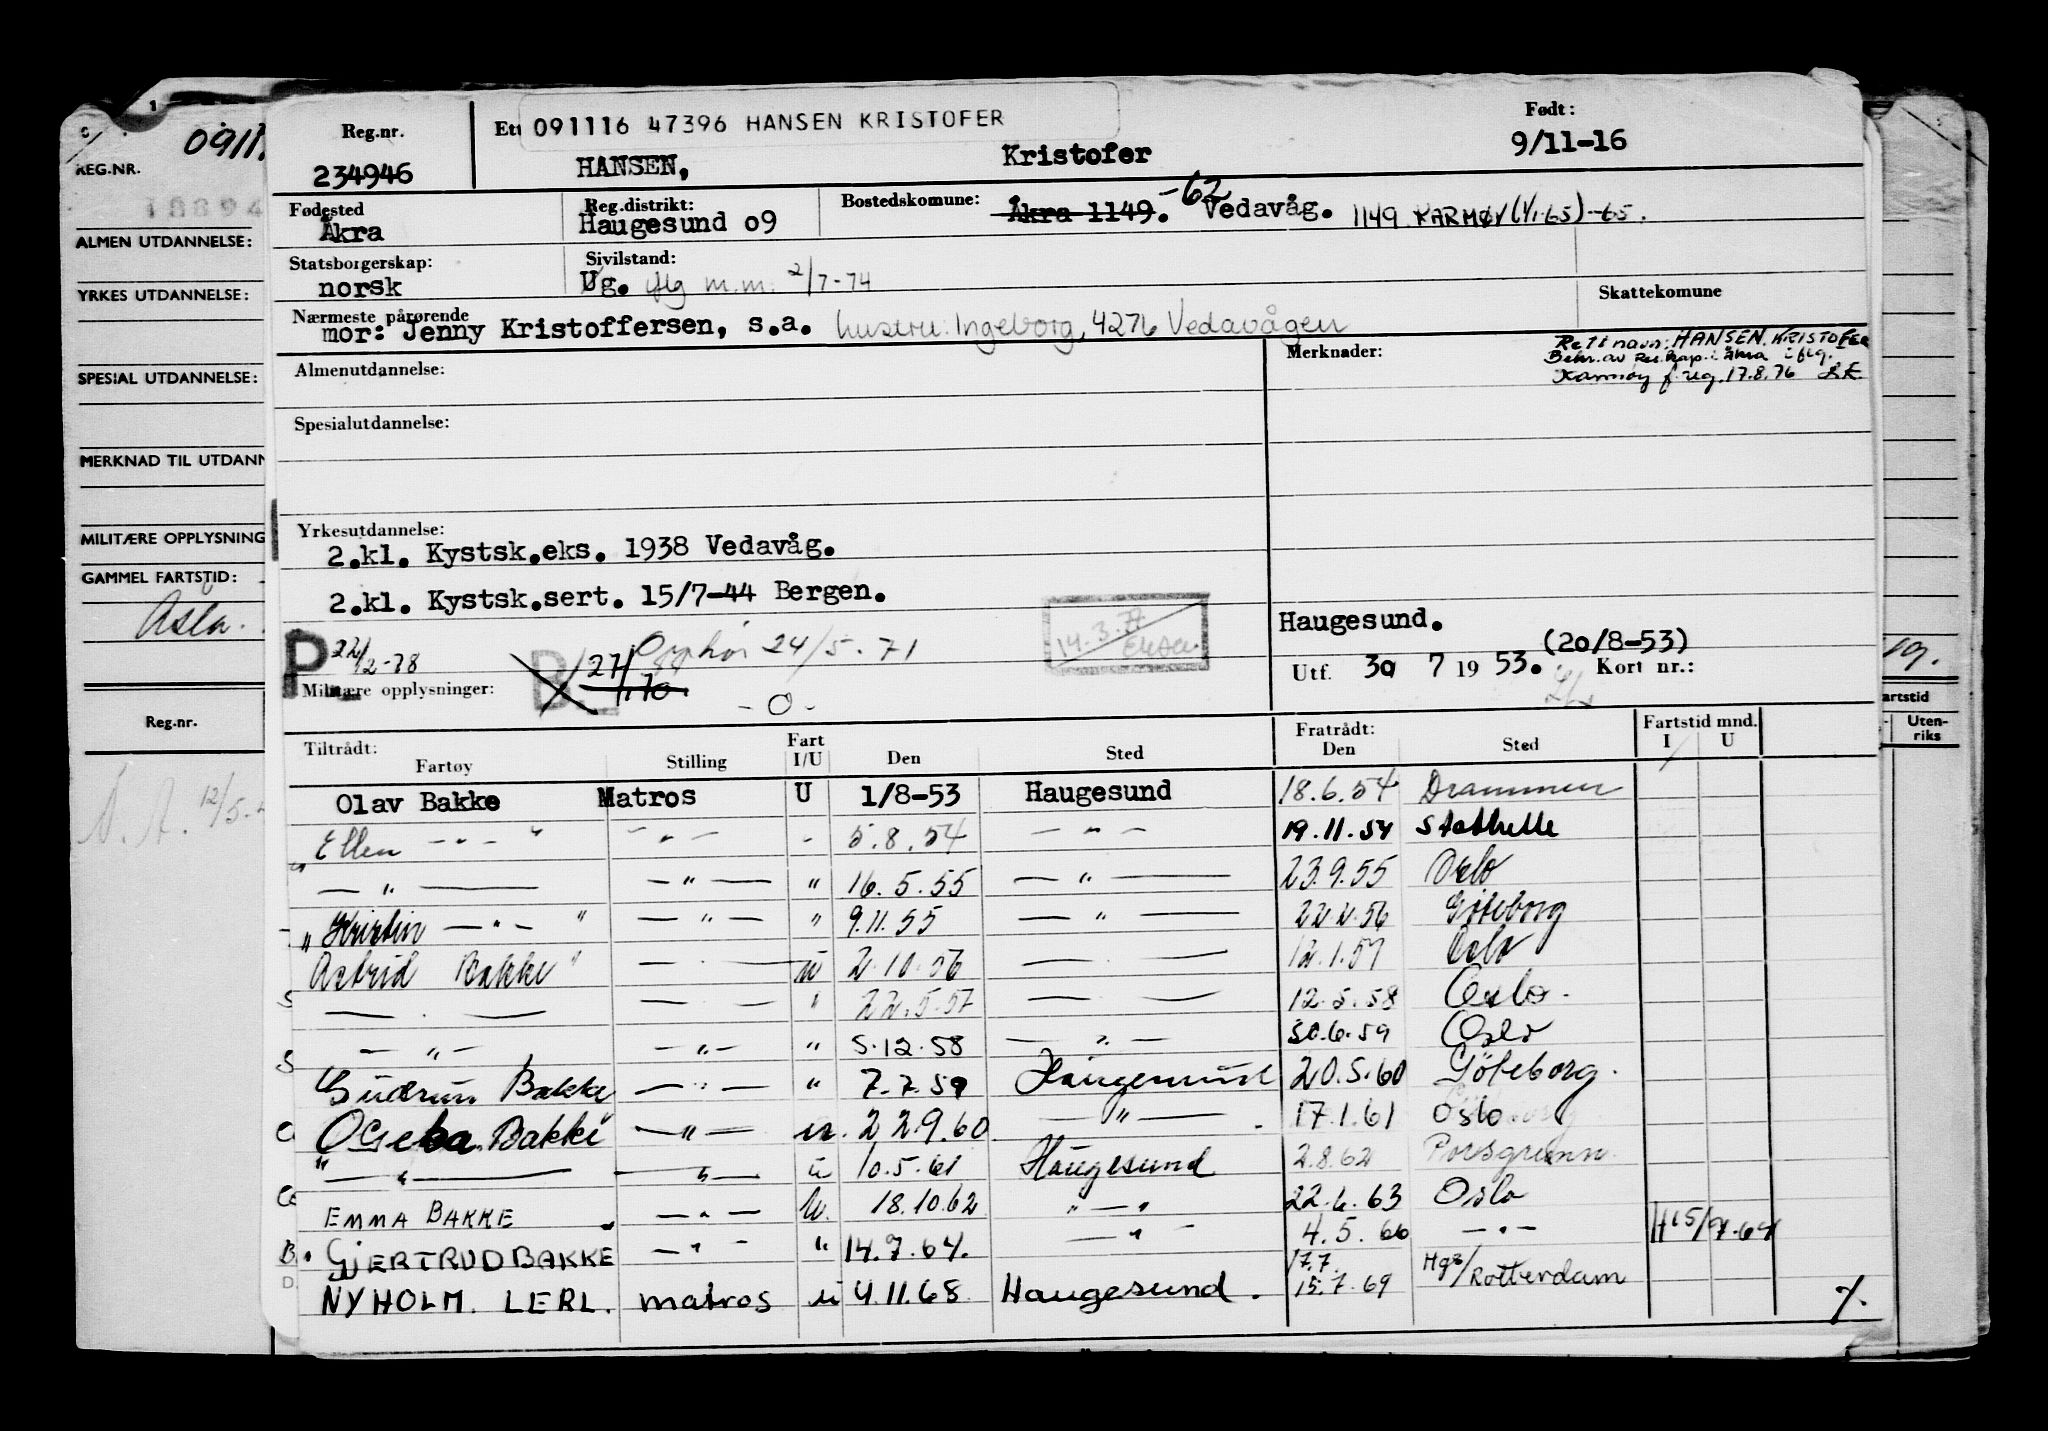 1
REG.NR. 0911
18894
ALMEN UTDANNELSE:
YRKES UTDANNELSE:
SPESIAL UTDANNELSE:
MERKNAD TIL UTDANN
MILITÆRE OPPLYSNING
GAMMEL FARTSTID:
Reg.nr.
12/5
Reg.nr. Ett 091116 47396 HANSEN KRISTOFER Født:
234946 HANSEN, Kristofer 9/11-16
Fødested Reg.distrikt: Bostedskomune: Åkra 1149. -62 Vedavåg. 1149 KARMØY (1/1-65) -65.
Åkra Haugesund o9
Statsborgerskap: Sivilstand:
norsk Ug. flg m.m. 2/7-74
Skattekomune
Nærmeste pårørende
mor: Jenny Kristoffersen, s.a. hustru: Ingeborg, 4276 Vedavågen
Almenutdannelse: Merknader: Rett navn: HANSEN, KRISTOFER
Bekr. av Åkra iflg.
Karmøy f.reg. 17.8.76
Spesialutdannelse:
Yrkesutdannelse:
2.kl. Kystsk.eks. 1938 Vedavåg.
2.kl. Kystsk.sert. 15/7-44 Bergen.
14.3.
Haugesund.
P 22/2-78 B 27/ Opphør 24/5-71
(20/8-53)
Militære opplysninger: -0- Utf. 30 7 19 53. Kort nr.:
Tiltrådt: Fratrådt: Fartstid mnd.
Fartøy Stilling Fart I/U Den Sted Den Sted I U
Olav Bakke Matros U 1/8-53 Haugesund 18.6.54 Drammen
" Ellen - " - " - " - - 5.8.54 - " - 19.11.54 Stathelle
- " - - " - " 16.5.55 - " - 23.9.55 Oslo
" Kristin - " - " - " - " 9.11.55 - " - 22.2.56 Göteborg
Astrid Bakke " - . - u 2.10.56 - . - 12.1.57 Oslo
- . - - . - " 22.5.57 - . - 12.5.58 Oslo.
- " - - " - " 5.12.58 - " - 30.6.59 Oslo
Gudrun Bakke - " - " 7.7.59 Haugesund 20.5.60 Göteborg.
Bakke - " - u. 22.9.60 - " - 17.1.61 Oslo
" - " - - " - u 10.5.61 Haugesund 2.8.62 Porsgrunn
EMMA BAKKE - " - U. 18.10.62 " - " 22.6.63 Oslo
GJERTRUD BAKKE - " - " 14.7.64. - " - 4.5.66 - " -
NYHOLM. LERL. matros u 4.11.68 Haugesund. 17.7. 15.7.69 Hgs/Rotterdam
19.
artstid
Uten-
riks